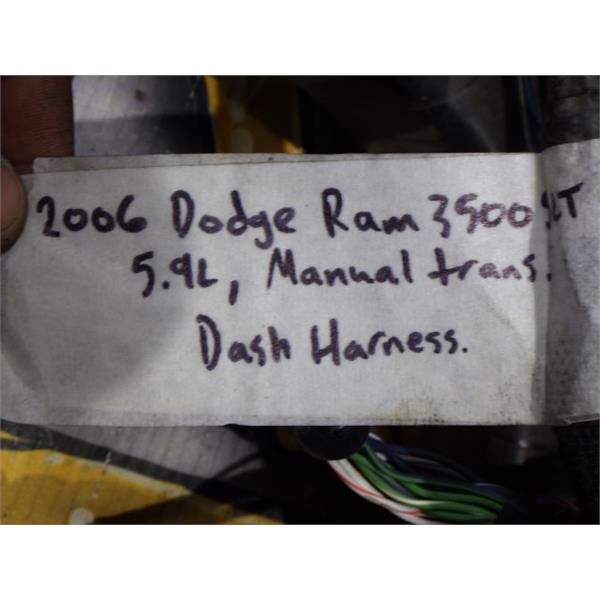 2006 Dodge Ram 3500 SLT
5.9L, Manual trans.
Dash Harness.